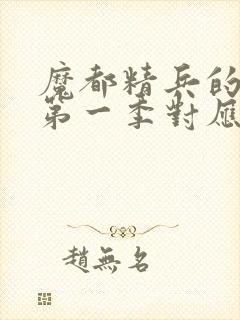 魔都精兵的
第一季對應
趙無名